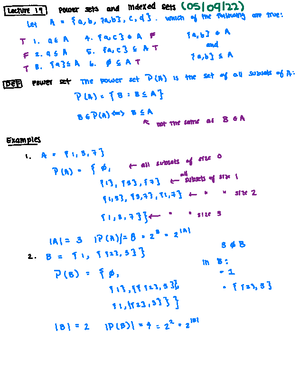 Lecture 19 Power sets and Indexed Sets (05/09/22)
Let A = {a, b, {a,b}, c, d}. Which of the following are true:
T 1. a ∈ A 4. {a,c} ∈ A F {a,b} ∈ A
F 2. a ⊆ A 5. {a,c} ⊆ A T and
T 3. {a} ⊆ A 6. ∅ ⊆ A T {a,b} ⊆ A
Def Power set The power set P(A) is the set of all subsets of A:
P(A) = {B : B ⊆ A}
B ∈ P(A) ⟺ B ⊆ A
not the same as B ∈ A
Examples
1. A = {1, 5, 7}
P(A) = { ∅, ← all subsets of size 0
{1}, {5}, {7} ← all subsets of size 1
{1,5}, {5,7}, {1,7} ← " " size 2
{1,5,7} } ← " " size 3
|A| = 3 |P(A)| = 8 = 2³ = 2^|A|
2. B = {1, {23,5}}
P(B) = { ∅,
{1}, {{23,5}},
{1,{23,5}} }
5 ∉ B
in B:
- 1
- {23,5}
|B| = 2 |P(B)| = 4 = 2² = 2^|B|